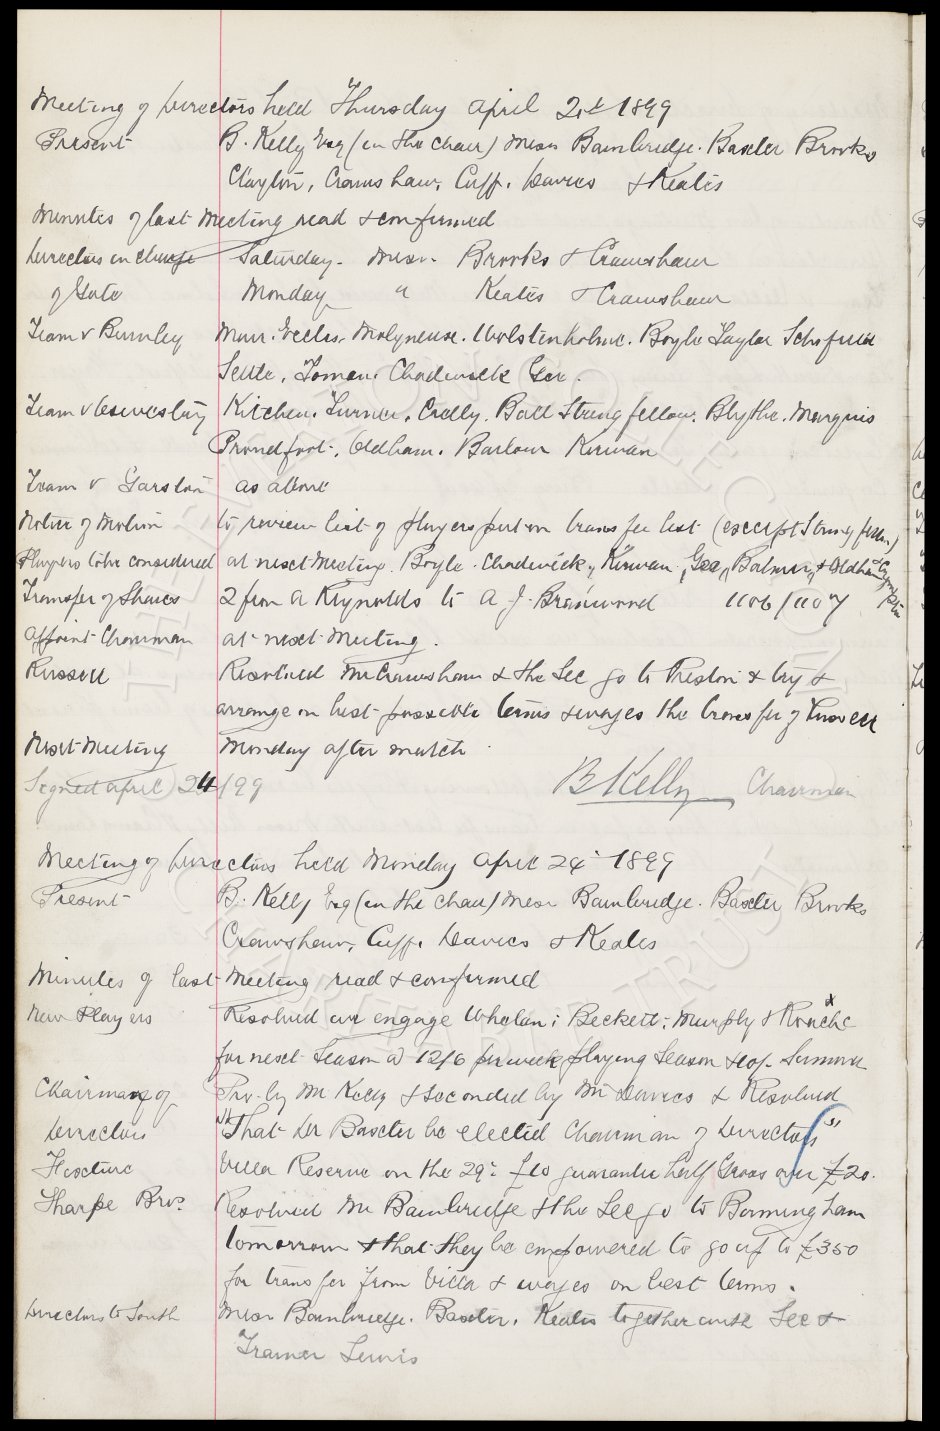 Meeting of Directors held Thursday April 21st 1899
Present B. Kelly Esq (in the chair) Messrs Bainbridge. Baxter Brooks
Clayton, Crawshaw, Cuff. Davies & Keates
Minutes of last Meeting read & confirmed
Directors in charge Saturday. Messrs. Brooks & Crawshaw
of Gate Monday " Keates & Crawshaw
Team v Burnley Muir. Eccles. Molyneux. Wolstenholme. Boyle Taylor Schofield
Settle. Toman. Chadwick Gee.
Team v Oswestry Kitchen. Turner. Crelly. Ball Stringfellow. Blythe. Marquis
Proudfoot. Oldham. Barlow Kirwan
Team v Garston as above
Notice of Motion to review list of players put on transfer list (except Stringfellow)
Players to be considered at next Meeting. Boyle. Chadwick, Kirwan, Gee, Balmer, & Oldham
Transfer of Shares 2 from A Reynolds to A. J. Branwood 1106/1107
Appoint Chairman at next Meeting.
Russell Resolved Mr Crawshaw & the Sec go to Preston & try &
arrange on best possible terms & wages the transfer of Russell
Next Meeting Monday after match
Signed April 24/99 B Kelly Chairman
Meeting of Directors held Monday April 24th 1899
Present B. Kelly Esq (in the chair) Messrs Bainbridge. Baxter, Brooks
Crawshaw, Cuff. Davies & Keates
Minutes of last Meeting read & confirmed
New Players Resolved we engage Whelan; Beckett; Murphy & Roache
for next Season @ 12/6 per week playing Season & 10/- Summer
Chairman of Pro. by Mr Kelly & seconded by Mr Davies & Resolved
Directors "That Dr Baxter be elected Chairman of Directors"
Fixture Villa Reserve on the 29th £10 guarantee half Gross over £20.
Sharpe Bros. Resolved Mr Bainbridge & the Sec go to Birmingham
tomorrow & that they be empowered to go up to £350
for transfer from Villa & wages on best terms.
Directors to South Messrs Bainbridge. Baxter. Keates together with Sec &
Trainer Lewis
THE EVERTON COLLECTION
CHARITABLE TRUST